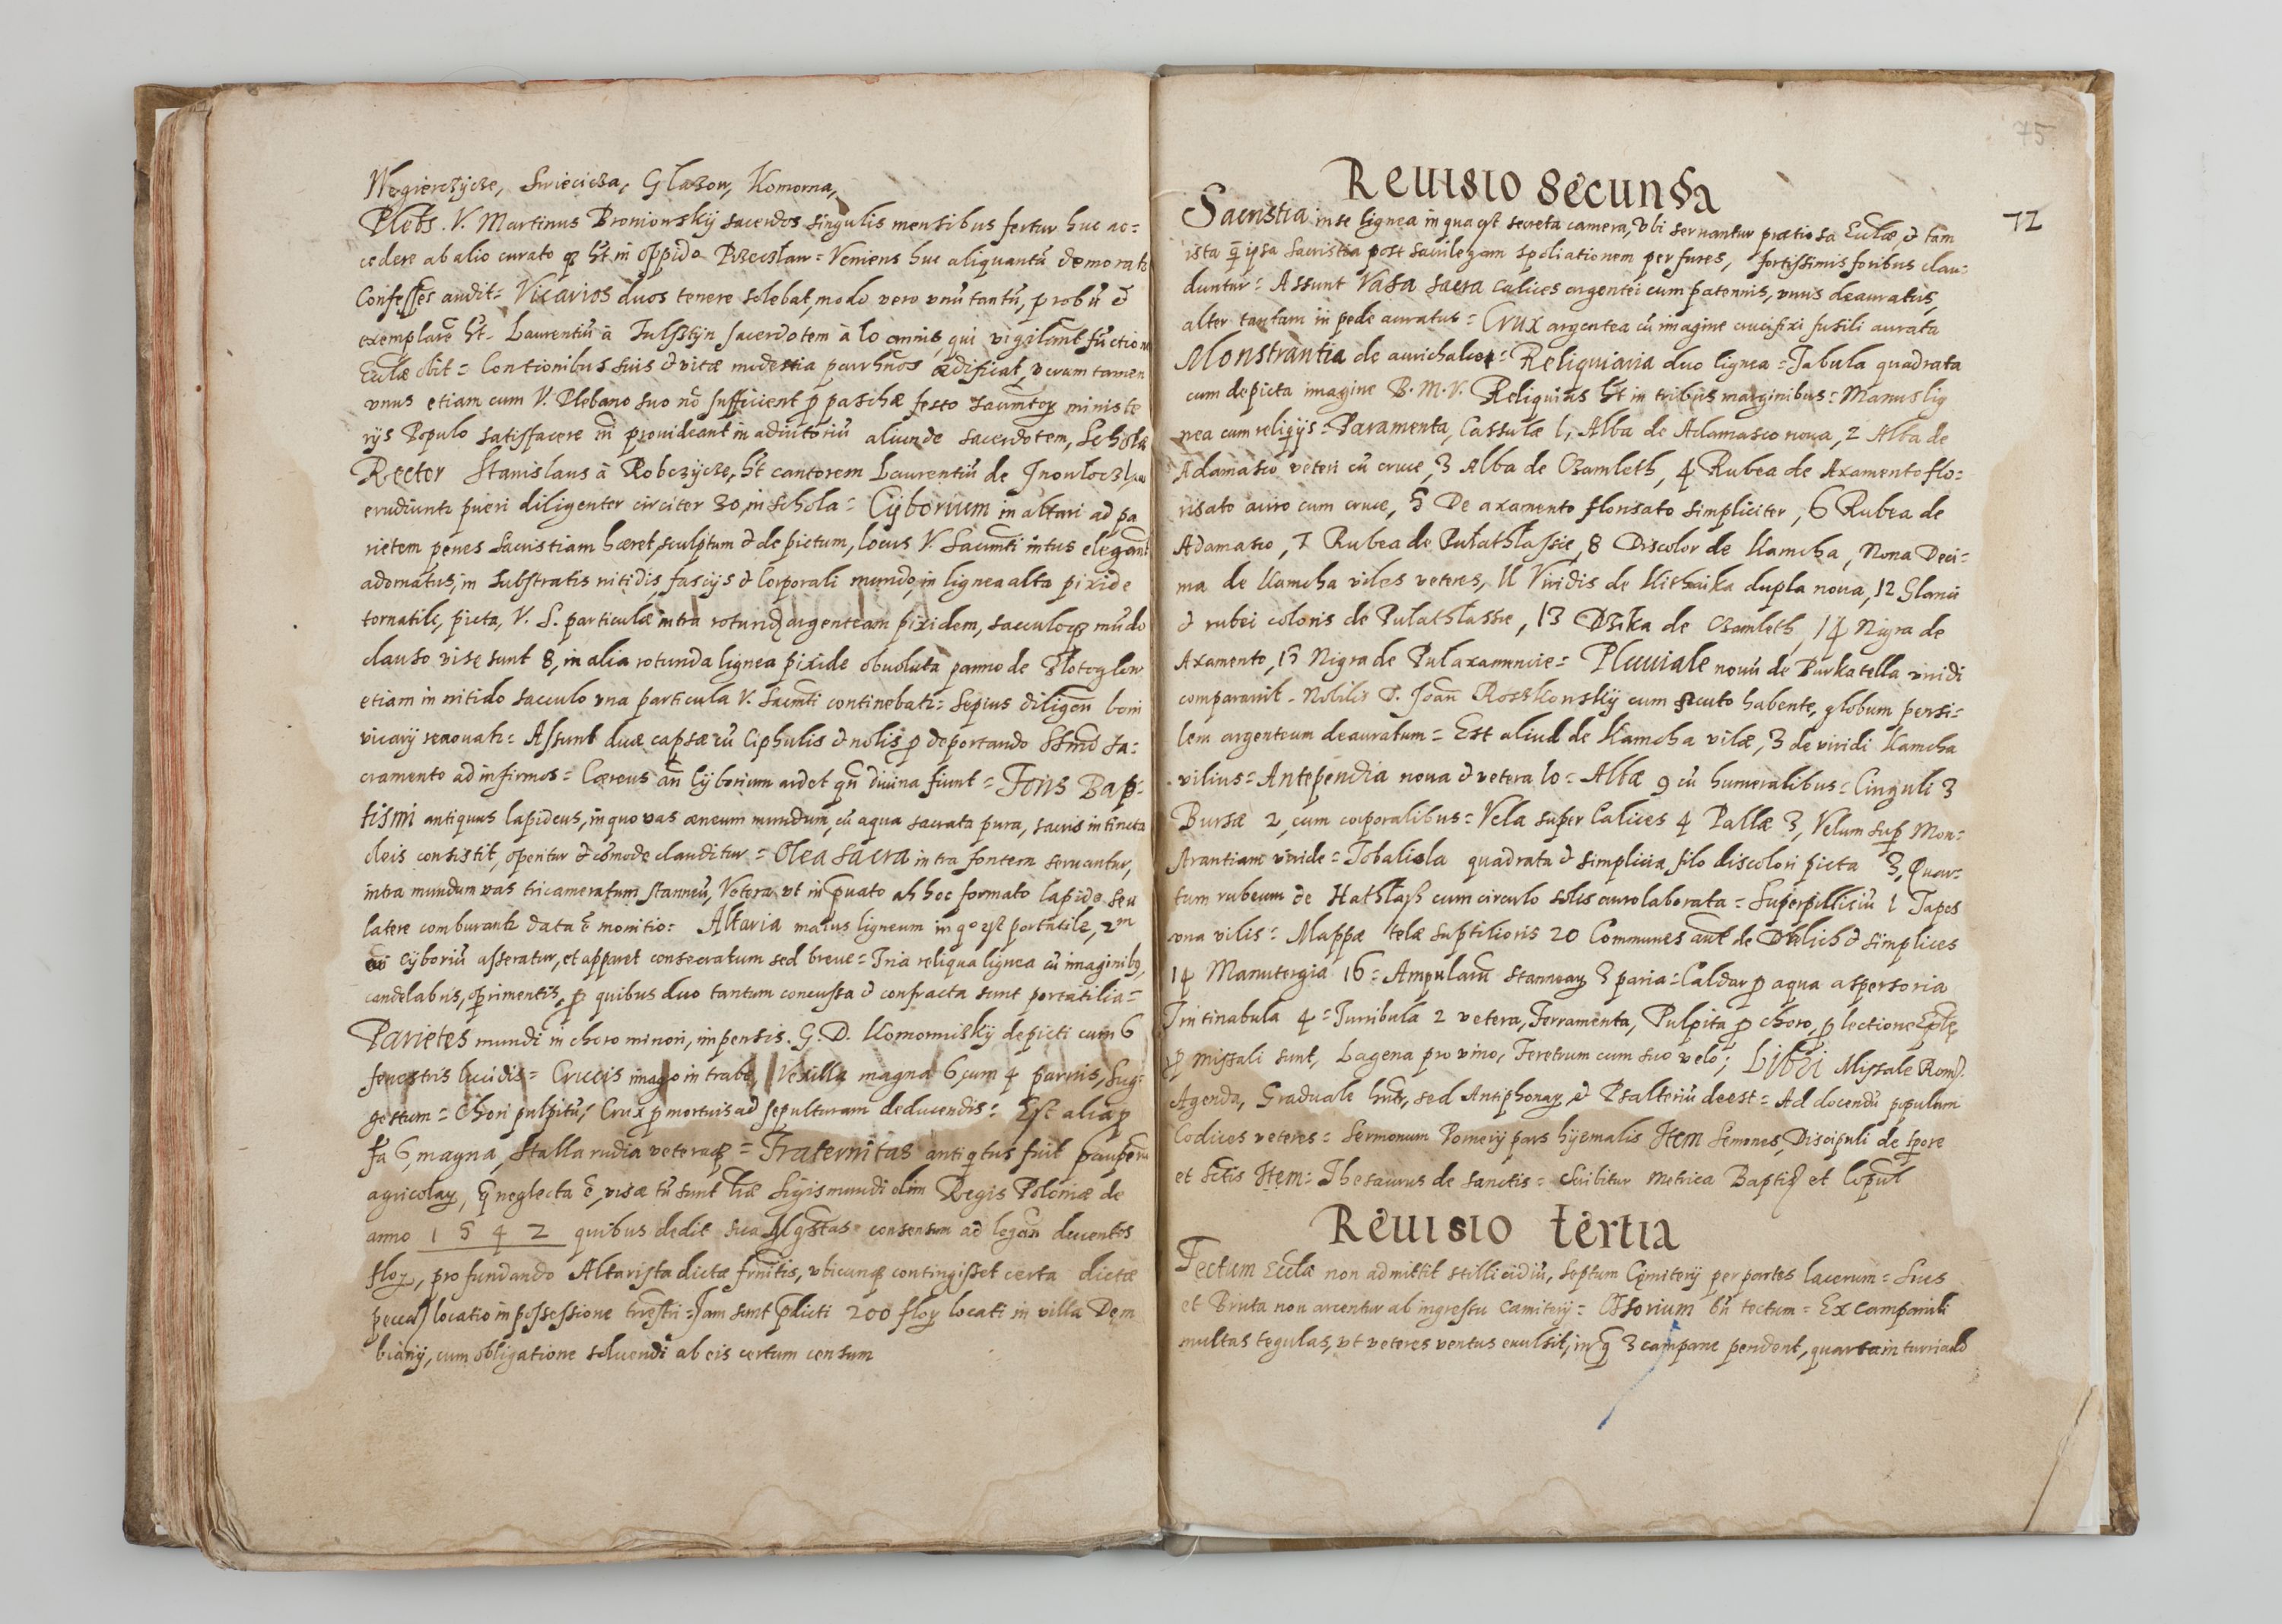 Węgierczycze, Swięcicza, Glazow, Komorna,
Plebs. V. Martinus Bronionskÿ sacerdos singulis mensibus fertur huc ac=
cedere ab alio curato q hēt in oppido Przeczlaw = Veniens huc aliquantū
Confesses audit = Vicarios duos tenere solebat, modo vero vnū tantū, probū &
exemplarē hēt. Laurentiū à sacerdotem à 10 annis, qui vigilant fūction
Ecclæ obit = Contionibus suis & vitæ modestia parrhnos ædificat, verum tamen
vnus etiam cum V. Plebano suo nō sufficient p paschæ festo ministe
rÿs Populo satisfacere provideant in adiutoriū aliunde sacerdotem, Scholæ
Rector Stanislaus à Robczÿcze, hēt cantorem Laurentiū de
erudiuntr pueri diligenter circiter 30, in schola = Cÿborium in altari ad pa
rietem penes sacristiam hæret, sculptum & depictum, locus V. Sacmti intus elegant
adornatus, in substratis nitidis, fascijs & Corporali mundo, in lignea alta pixide
tornatili, picta, V. S. particulæ intra argenteam pixidem, sacculoq mūdo
clauso visę sunt 8, in alia rotunda lignea pixide obuoluta panno de
etiam in nitido sacculo vna particula V. Sacmti continebatr = Sępius boni
vicarÿ renouatr = Assunt duæ capsæ cū Ciphulis & nolis p deportando sa=
cramento ad infirmos = Cæreus an Cÿborium ardet qn diuina fiunt = Fons Bap=
tismi antiquus lapideus, in quo vas æneum mundum, cū aqua sacrata pura, sacris intincta
oleis consistit, operitur & cōmode clauditur = Olea sacra intra fontem seruantur,
intra mundum vas tricameratum stanneū, Vetera vt in ad hoc formato lapide seu
latere comburantr data ē monitio = Altaria maius ligneum in qo est portatile, 2m
cÿboriū asseratur, et apparet consecratum sed breue = Tria reliqua lignea cū imaginib9,
candelabris, oprimentis, p quibus duo tantum concussa & confracta sunt portatilia =
Parietes mundi in choro minori, impensis. G. D. depicti cum 6
fenestris lucidis = Crucis imago in trabe, Vexilla magna 6, cum 4 paruis, Sug=
gestum = Chori pulpitū, Crux p mortuis ad sepulturam deducendis = Est alia
6, magna, Stalla rudia veteraq = Fraternitas antiqtus fuit paupeū
agricolaꝝ, neglecta ē, visæ tn sunt lræ Sigismundi olim Regis Poloniæ de
anno 1 5 4 2 quibus dedit sua consensum ad ducentos
floꝝ, pro fundando Altarista dictæ frnitis, vbicunq contingisset certa dictæ
locatio in possessione terestri = Iam sunt pdicti 200 floꝝ locati in villa Dem
bianÿ, cum obligatione soluendi ab eis certum censum
75
72
Reuisio Secunda
Sacristia in se lignea in qua est secreta camera, vbi seruantur prætiosa Ecclæ, & tam
ista q̄ ipsa Sacristia post sacrilegam spoliationem per fures, fortissimis foribus clau=
duntur = Assunt Vasa sacra Calices argentei cum patennis, vnus deauratus,
alter tantum in pede auratus = Crux argentea cū imagine crucifixi fusili aurata
Monstrantia de aurichalco = Reliquiaria duo lignea = Tabula quadrata
cum depicta imagine B. M. V. Reliquias hēt in tribus marginibus = Manus lig
nea cum reliqijs = Paramenta, Cassulæ 1, Alba de Adamasco noua, 2 Alba de
Adamasco veteri cū cruce, 3 Alba de Czamleth, 4 Rubea de Axamento flo=
risato auro cum cruce, 5 De axamento florisato simpliciter, 6 Rubea de
Adamasco, 7 Rubea de Pułathłassie, 8 Discolor de Kamcha, Nona Deci=
ma de Kamcha viles veteres, 11 Viridis de Kithaika dupla noua, 12 Glauci
& rubei coloris de Pułathłassie, 13 Dzika de Czamleth, 14 Nigra de
Axamento, 15 Nigra de Pułaxamencie = Pluuiale nouū de Purkatella viridi
comparauit. Nobilis D. Joan cum scuto habente, globum pensi=
lem argenteum deauratum = Est aliud de Kamcha vilæ, 3 de viridi Kamcha
vilius = Antependia noua & vetera 10 = Albæ 9 cū humeralibus = Cinguli 3
Bursæ 2, cum corporalibus = Vela super Calices 4 Pallæ 3, Velum sup Mon=
strantiam viride = Tobaliola quadrata & simplicia, filo discolori picta 3, Quar=
tum rubeum de Hathłasß cum circulo solis auro laborata = Superpelliciū 1 Tapes
vna vilis = Mappæ telæ suptilioris 20 Communes aut de Dÿlich & simplices
14 Manutergia 16 = Ampularū stanneaꝝ 3 paria = Caldar p aqua aspersoria
Tintinabula 4 = Turribula 2 vetera, Ferramenta, Pulpita p choro, p lectione
p missali sunt, Lagena pro vino, Feretrum cum suo velo; Libri Missale Rom.
Agenda, Graduale hntr, sed Antiphonaꝝ & Psalteriū deest = Ad docendū populum
Codices veteres = Sermonum Pomerij pars hÿemalis Item Semones, Discipuli de tpore
et sctis Item = Thesaurus de sanctis = Scribitur Metrica Baptiz et Copul
Reuisio tertia
Tectum Ecclæ non admittit stillicidiū, Septum Cęmiterij per partes lacerum = Sues
et Bruta non arcentur ab ingressu Cæmiterij = Ossorium bn tectum = Ex Campanili
multas tegulas, vt veteres ventus euulsit, in q 3 campanæ pendent, quarta in turri